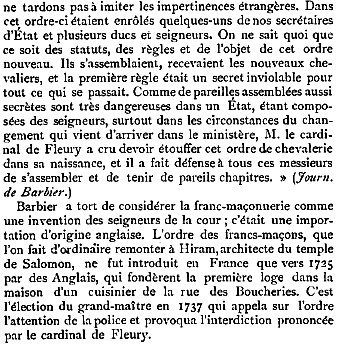 ne tardons pas à imiter les impertinences étrangères. Dans
cet ordre-ci étaient enrôlés quelques-uns de nos secrétaires
d'État et plusieurs ducs et seigneurs. On ne sait quoi que
ce soit des statuts, des règles et de l'objet de cet ordre
nouveau. Ils s'assemblaient, recevaient les nouveaux che-
valiers, et la première règle était un secret inviolable pour
tout ce qui se passait. Comme de pareilles assemblées aussi
secrètes sont très dangereuses dans un État, étant compo-
sées des seigneurs, surtout dans les circonstances du chan-
gement qui vient d'arriver dans le ministère, M. le cardi-
nal de Fleury a cru devoir étouffer cet ordre de chevalerie
dans sa naissance, et il a fait défense à tous ces messieurs
de s'assembler et de tenir de pareils chapitres. » (Journ.
de Barbier.)
Barbier a tort de considérer la franc-maçonuerie comme
une invention des seigneurs de la cour ; c'était une impor-
tation d'origine anglaise. L'ordre des francs-maçons, que
l'on fait d'ordinaire remonter à Hiram, architecte du temple
de Salomon, ne fut introduit en France que vers 1725
par des Anglais, qui fondèrent la première loge dans la
maison d'un cuisinier de la rue des Boucheries. C'est
l'élection du grand-maître en 1737 qui appela sur l'ordre
l'attention de la police et provoqua l'interdiction prononcée
par le cardinal de Fleury.